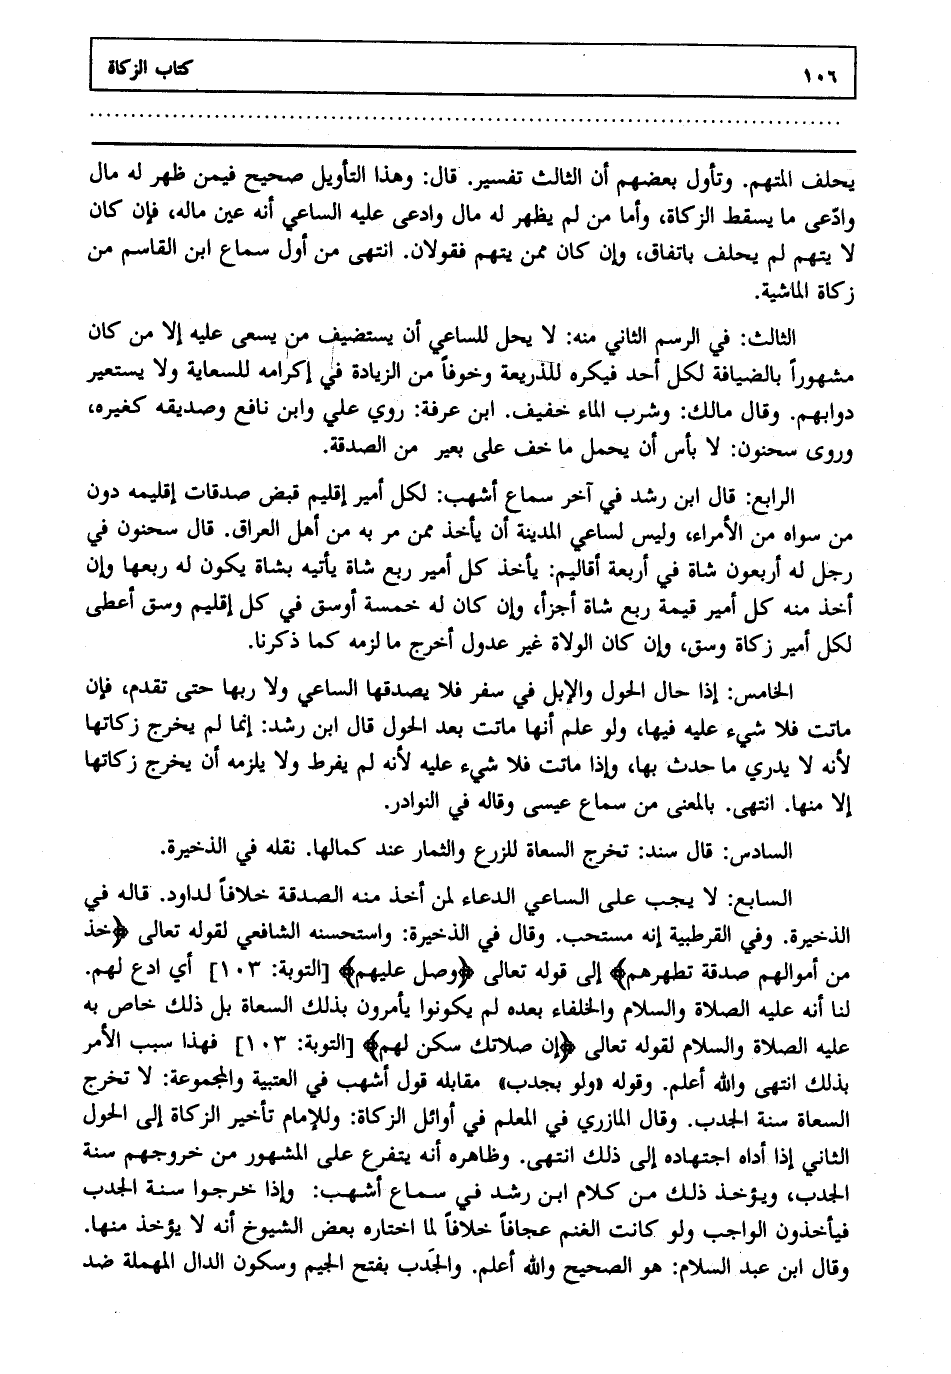 ١٠٦
كتاب الزكاة
يحلف المتهم. وتأول بعضهم أن الثالث تفسير. قال: وهذا التأويل صحيح فيمن ظهر له مال
وادّعى ما يسقط الزكاة، وأما من لم يظهر له مال وادعى عليه الساعي أنه عين ماله، فإن كان
لا يتهم لم يحلف باتفاق، وإن كان ممن يتهم فقولان. انتهى من أول سماع ابن القاسم من
زكاة الماشية.
الثالث: في الرسم الثاني منه: لا يحل للساعي أن يستضيف من يسعى عليه إلا من كان
مشهوراً بالضيافة لكل أحد فيكره للذريعة وخوفاً من الزيادة في إكرامه للسعاية ولا يستعير
دوابهم. وقال مالك: وشرب الماء خفيف. ابن عرفة: روي علي وابن نافع وصديقه كغيره،
وروى سحنون: لا بأس أن يحمل ما خف على بعير من الصدقة.
الرابع: قال ابن رشد في آخر سماع أشهب: لكل أمير إقليم قبض صدقات إقليمه دون
من سواه من الأمراء، وليس لساعي المدينة أن يأخذ ممن مر به من أهل العراق. قال سحنون في
رجل له أربعون شاة في أربعة أقاليم: يأخذ كل أمير ربع شاة يأتيه بشاة يكون له ربعها وإن
أخذ منه كل أمير قيمة ربع شاة أجزأ، وإن كان له خمسة أوسق في كل إقليم وسق أعطى
لكل أمير زكاة وسق، وإن كان الولاة غير عدول أخرج ما لزمه كما ذكرنا.
الخامس: إذا حال الحول والإبل في سفر فلا يصدقها الساعي ولا ربها حتى تقدم، فإن
ماتت فلا شيء عليه فيها، ولو علم أنها ماتت بعد الحول قال ابن رشد: إنما لم يخرج زكاتها
لأنه لا يدري ما حدث بها، وإذا ماتت فلا شيء عليه لأنه لم يفرط ولا يلزمه أن يخرج زكاتها
إلا منها. انتهى. بالمعنى من سماع عيسى وقاله في النوادر.
السادس: قال سند: تخرج السعاة للزرع والثمار عند كمالها. نقله في الذخيرة.
السابع: لا يجب على الساعي الدعاء لمن أخذ منه الصدقة خلافاً لداود. قاله في
الذخيرة. وفي القرطبية إنه مستحب. وقال في الذخيرة: واستحسنه الشافعي لقوله تعالى ﴿خذ
من أموالهم صدقة تطهرهم﴾ إلى قوله تعالى ﴿وصل عليهم﴾ [التوبة: ١٠٣] أي ادع لهم.
لنا أنه عليه الصلاة والسلام والخلفاء بعده لم يكونوا يأمرون بذلك السعاة بل ذلك خاص به
عليه الصلاة والسلام لقوله تعالى ﴿إن صلاتك سكن لهم﴾ [التوبة: ١٠٣] فهذا سبب الأمر
بذلك انتهى والله أعلم. وقوله «ولو بجدب» مقابله قول أشهب في العتبية والمجموعة: لا تخرج
السعاة سنة الجدب. وقال المازري في المعلم في أوائل الزكاة: وللإمام تأخير الزكاة إلى الحول
الثاني إذا أداه اجتهاده إلى ذلك انتهى. وظاهره أنه يتفرع على المشهور من خروجهم سنة
الجدب، ويؤخذ ذلك من كلام ابن رشد في سماع أشهب: وإذا خرجوا سنة الجدب
فيأخذون الواجب ولو كانت الغنم عجافاً خلافاً لما اختاره بعض الشيوخ أنه لا يؤخذ منها.
وقال ابن عبد السلام: هو الصحيح والله أعلم. والجَدب بفتح الجيم وسكون الدال المهملة ضد